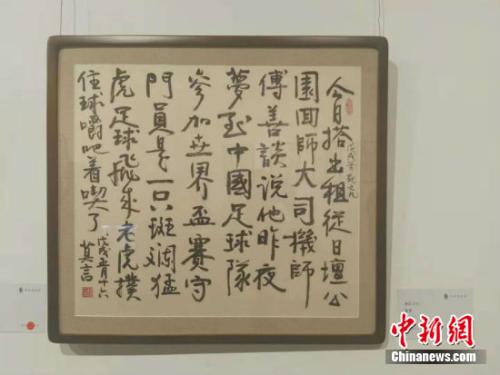 今日搭出租從日壇公
園回師大司機師
傅善談說他昨夜
夢到中國足球隊
參加世界盃賽守
門員是一只斑斕猛
虎足球飛來老虎撲
住球嚼吧着喫了
戊戌五月十六
莫言
中新網
Chinanews.com